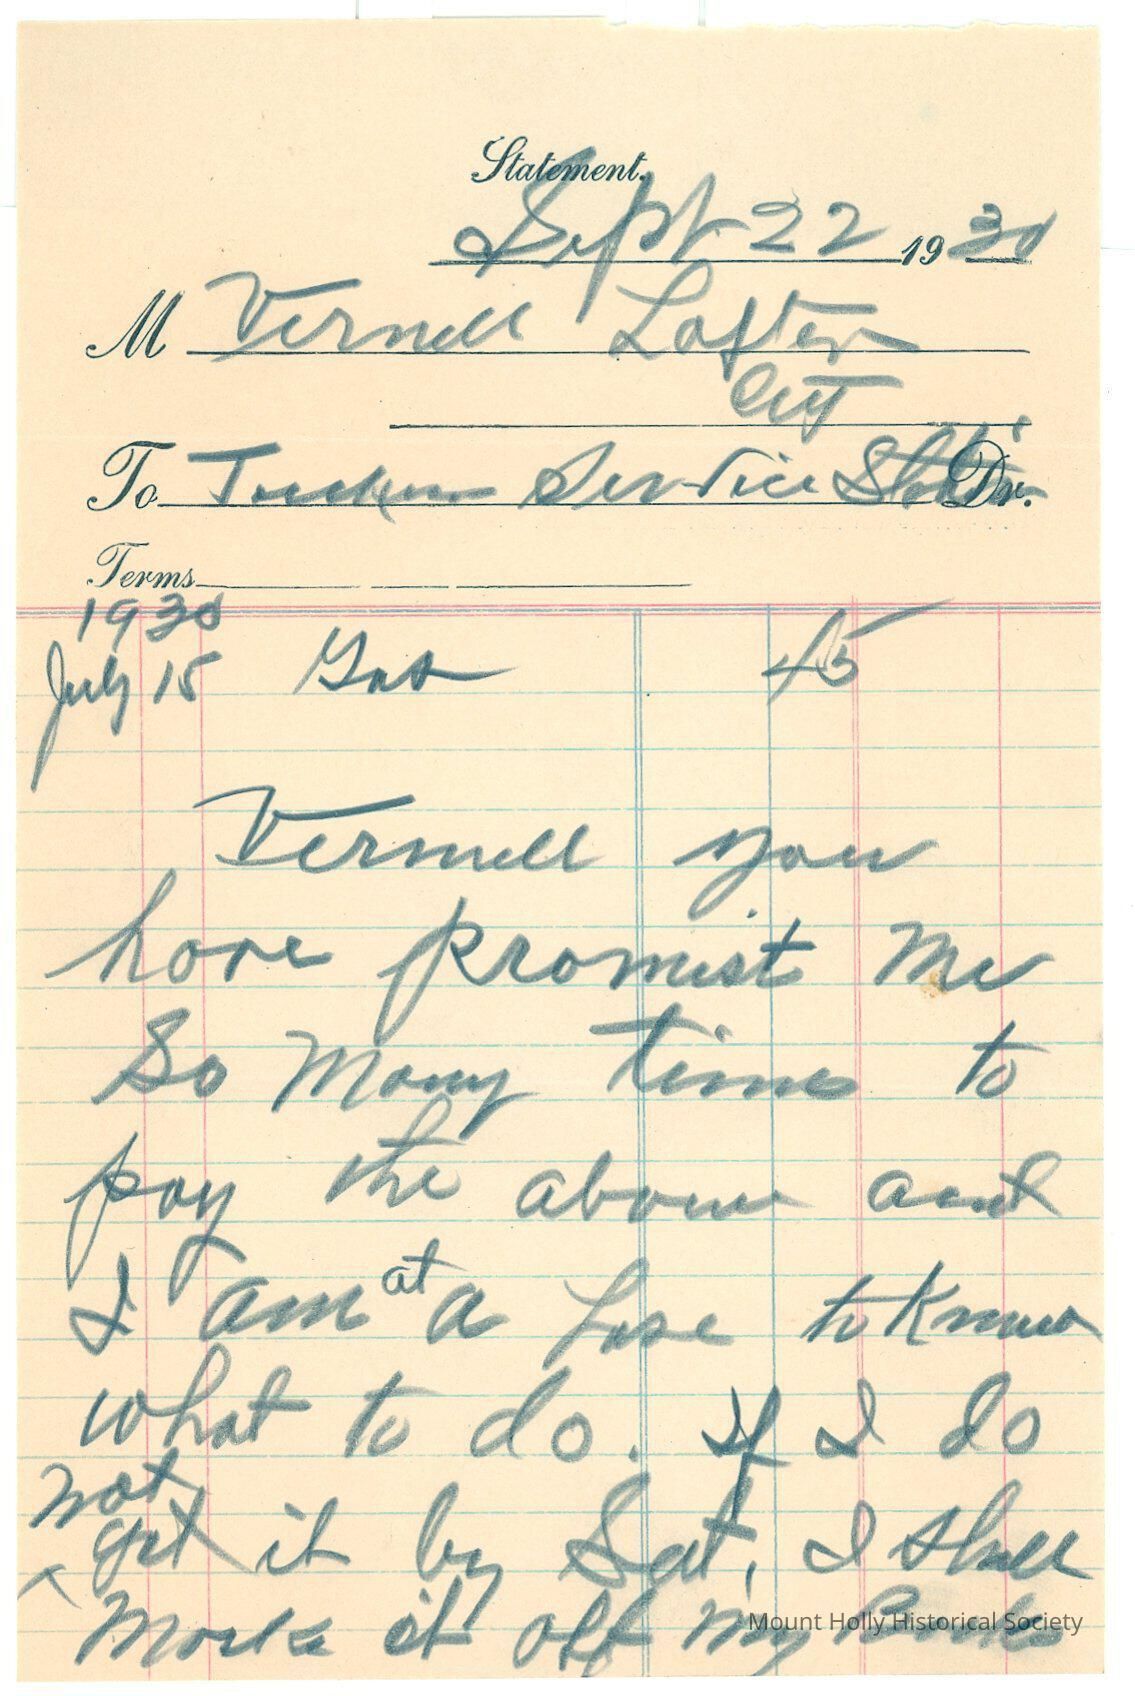 Statement.
Sept. 22 1930
M Vernell Loften
City
To Service Stat. Dr.
Terms
1930
July 15 Gas 45
Vernell you
have promist Me
So Many times to
pay the above and
I am at a lose to Know
what to do. If I do
not
get it by Sat, I shall
Mark it off my Books
Mount Holly Historical Society